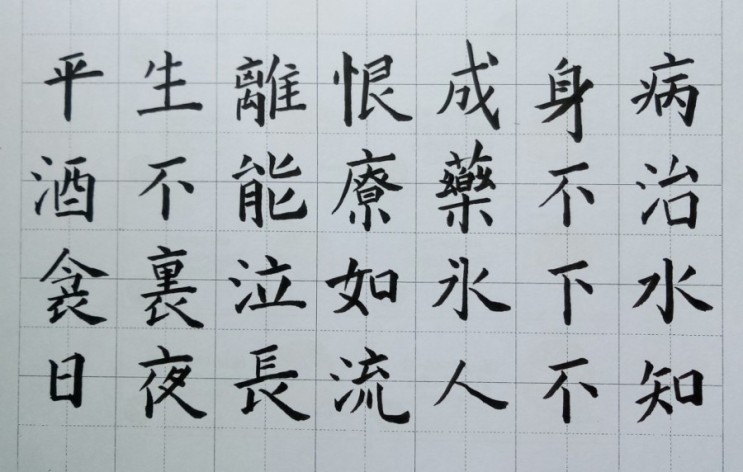 平生離恨成身病
酒不能療藥不治
衾裏泣如氷下水
日夜長流人不知